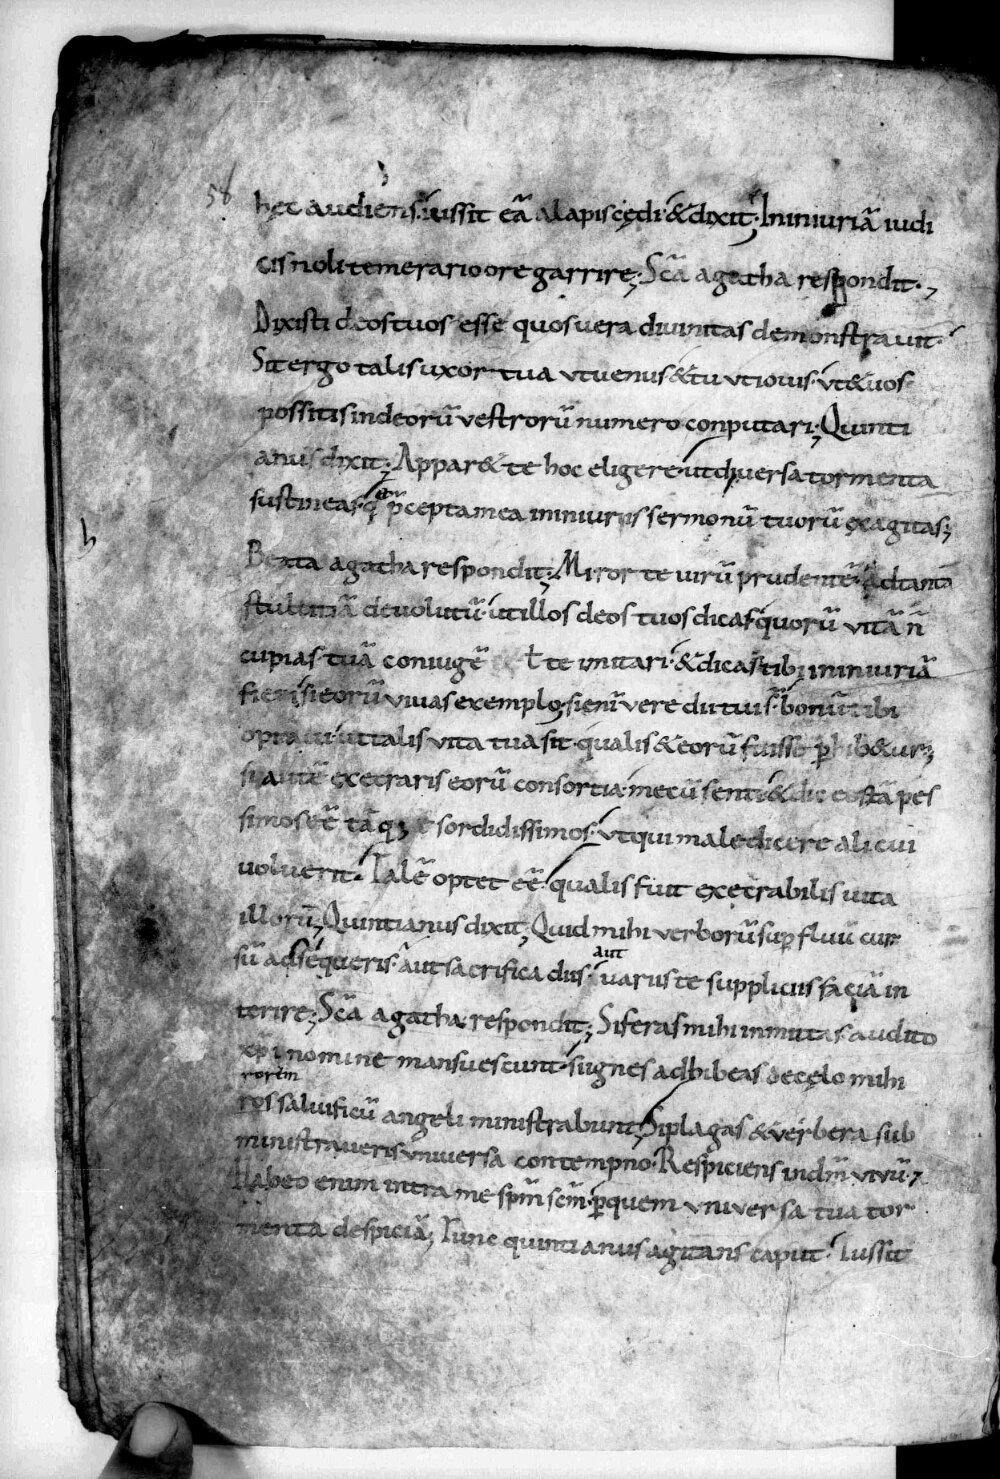 58
hęc audiens. iussit eā alapis cędi. & dixit; In iniuriā iudi
cis noli temerario ore garrire; Scā agatha respondit.,
Dixisti deos tuos esse quos uera diuinitas demonstrauit.
Sit ergo talis uxor tua ut uenus. & tu ut iouis. ut & uos
possitis in deorū vestrorū numero conputari; Quinti
anus dixit; Appar& te hoc eligere. ut diuersa tormenta
sustineas. p̄cepta mea in iniuriis sermonū tuorū exagitas;
h
Beata agatha respondit; Miror te uirū prudentē. Ad tantā
stultitiā deuolutū. ut illos deos tuos dicas quorū vitā n̄
cupias tuā coniugē ł te imitari. & dicas tibi in iniuriā
fieri si eorū viuas exemplo; si enī vere dii tui s̄. bonū tibi
optaui. ut talis vita tua sit. qualis & eorū fuisse phib&ur;
si autē execraris eorū consortia. mecū senti. & dic eos tā pes
simos eē tāq; sordidissimos. ut qui maledicere alicui
uoluerit. Talē optet eē. qualis fuit exęcrabilis uita
illorū; Quintianus dixit; Quid mihi verborū supfluū cur
sū adsequeris. aut sacrifica diis. aut uariis te suppliciis faciā in
terire; Scā agatha respondit; Si feras mihi inmittas. audito
xp̄i nomine mansuescunt. si ignes adhibeas de cęlo mihi
rorem
ros saluificū angeli ministrabunt; Si plagas & verbera sub
ministraueris vniuersa contempno. Respiciens in dn̄m viuū.,
Habeo enim intra me sp̄m scm̄. p quem vniuersa tua tor
menta despiciā; Tunc quintianus agitans caput. Iussit